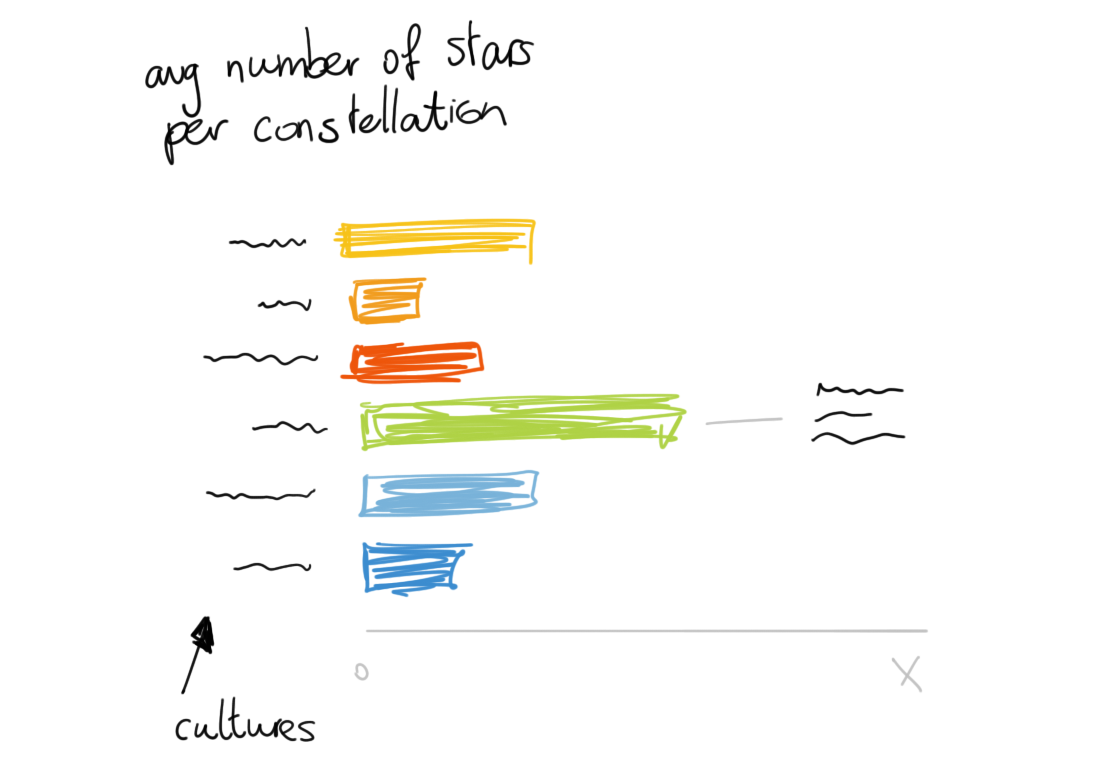 avg number of stars
per constellation
0
X
cultures